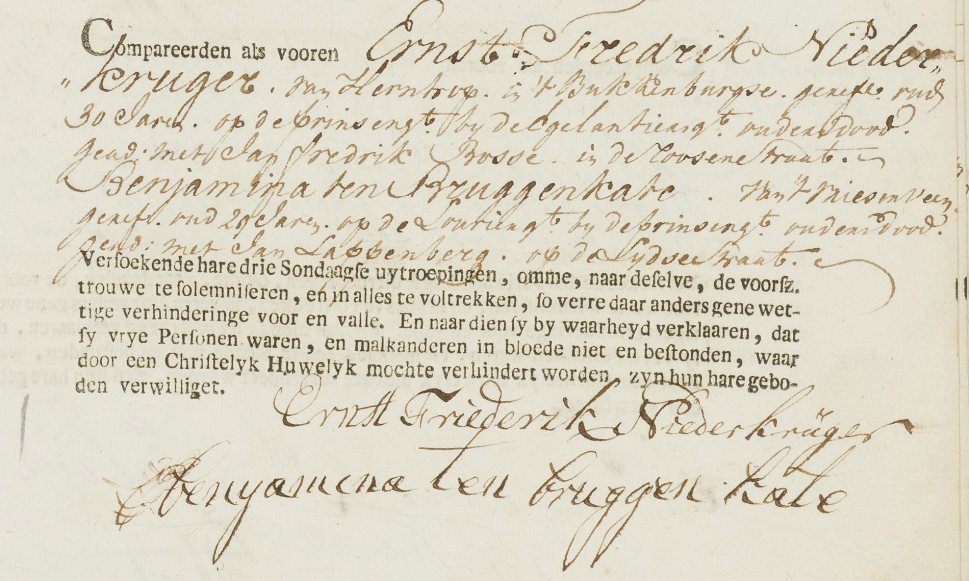 Compareerden als vooren Ernst Fredrik Nieder„
„kruger. van Herntrop. in 't Bukkenburgse. geref. oud
30 Jaren. op de prinsengt by de Egelantiersgt. ouders dood.
gead: met Jan fredrik Bosse. in de Roosenstraat.
Benjamina ten Bruggenkate. van 't Vriesenveen
geref. oud 29 Jaren. op de Lauriergt by de prinsengt ouders dood.
gead: met Jan Lappenberg. op de Lydsestraat.
Versoekende hare drie Sondaagse uytroepingen, omme, naar deselve, de voorsz.
trouwe te solemniseren, en in alles te voltrekken, so verre daar anders gene wet-
tige verhinderinge voor en valle. En naar dien sy by waarheyd verklaaren, dat
sy vrye Personen waren, en malkanderen in bloede niet en bestonden, waar
door een Christelyk Huwelyk mochte verhindert worden, zyn hun hare gebo-
den verwilliget.
Ernst Friederik Niederkrüger
benyamina ten bruggen kate